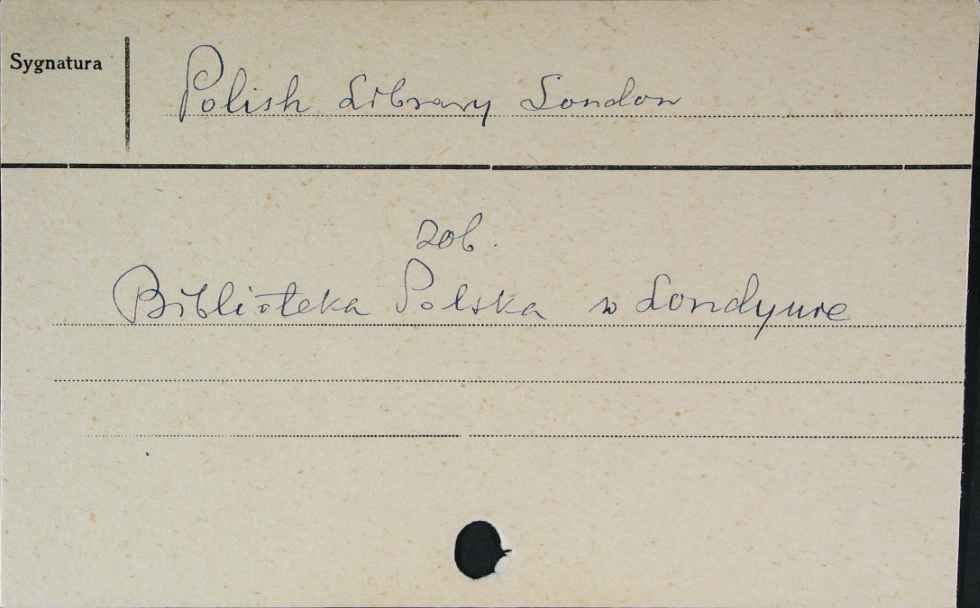 Sygnatura
Polish Library London
zob.
Biblioteka Polska w Londynie